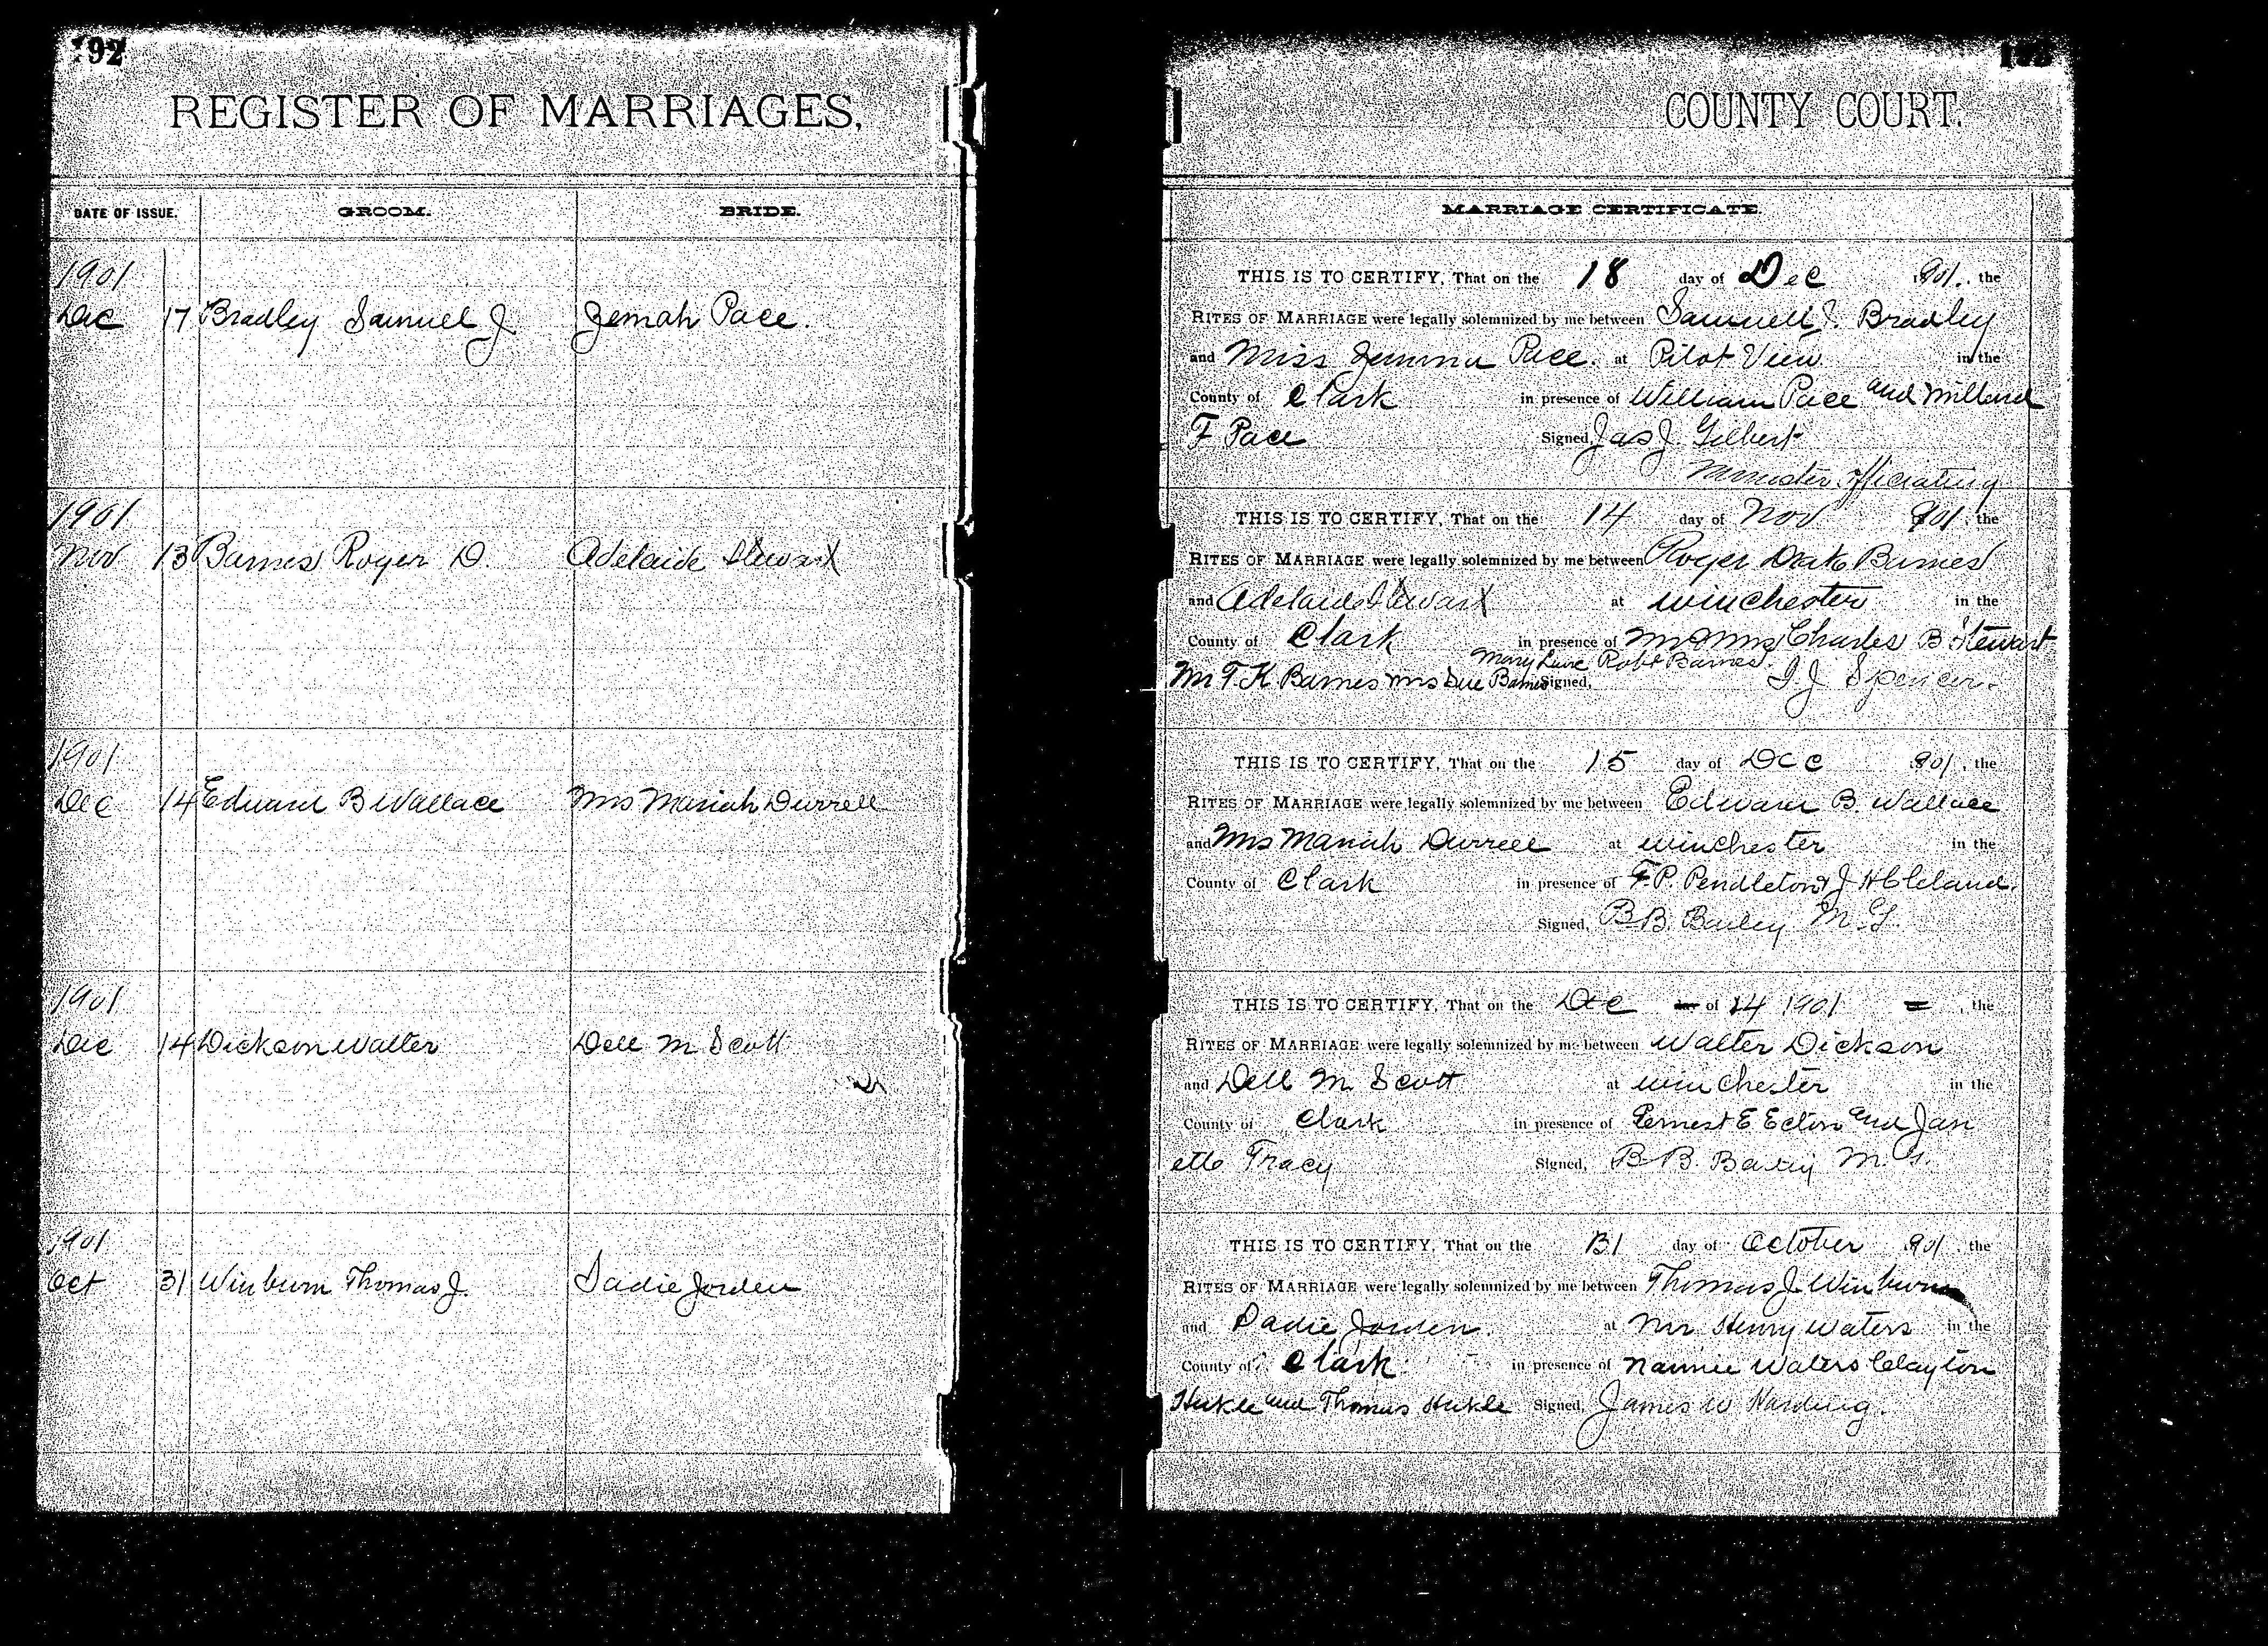 192
REGISTER OF MARRIAGES,
DATE OF ISSUE. GROOM. BRIDE.
1901
Dec 17 Bradley Samuel J Zemah Pace.
1901
Nov 13 Barnes Roger D. Adelaide Stewart
1901
Dec 14 Edward B Wallace Mrs Mariah Durrell
1901
Dec 14 Dickson Walter Dell M Scott
1901
Oct 31 Winburn Thomas J. Sadie Jorden
193
COUNTY COURT.
MARRIAGE CERTIFICATE.
THIS IS TO CERTIFY, That on the 18 day of Dec 1901. the
RITES OF MARRIAGE were legally solemnized by me between Samuell J. Bradley
and Miss Pace. at Pilot View in the
County of Clark in presence of William Pace and Millard
F Pace Signed, Jas J. Gilbert
Minister officiating
THIS IS TO CERTIFY, That on the 14 day of Nov 901. the
RITES OF MARRIAGE were legally solemnized by me between Roger Barnes
and Adelaide Stewart at Winchester in the
County of Clark in presence of Mr & Mrs Charles B. Stewart
Mary Robt Barnes.
Mr T. K Barnes Mrs Sue Barnes Signed, I. J. Spencer.
THIS IS TO CERTIFY, That on the 15 day of Dec 901, the
RITES OF MARRIAGE were legally solemnized by me between Edward B. Wallace
and Mrs Mariah Durrell at Winchester in the
County of Clark in presence of F. P. Pendleton & J H Cleland.
Signed, B B. Bailey M. G.
THIS IS TO CERTIFY, That on the Dec day of 14 1901 , the
RITES OF MARRIAGE were legally solemnized by me between Walter Dickson
and Dell M. Scott at Winchester in the
County of Clark in presence of Ernest E Ecton and Jan
ette Tracy Signed, B B. Baily M. G.
THIS IS TO CERTIFY, That on the 31 day of October 1901. the
RITES OF MARRIAGE were legally solemnized by me between Thomas J. Winburn
and Sadie Jorden. at Mr Henry Waters in the
County of Clark in presence of Nannie Waters Clayton
Hukle and Thomas Hukle Signed, James W Harding.